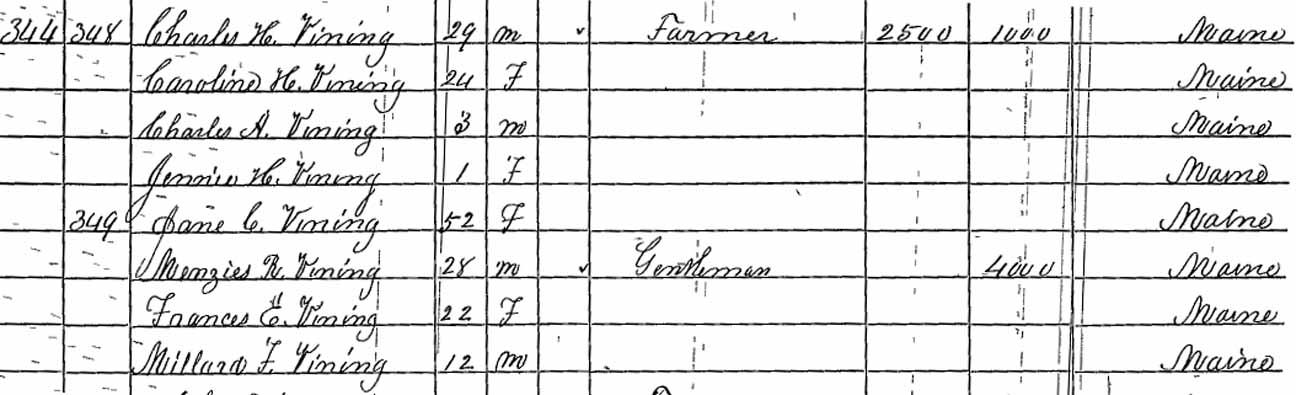 344 348 Charles H. Vining 29 m ✓ Farmer 2500 1000 Maine
Caroline H. Vining 24 F Maine
Charles A. Vining 3 m Maine
Jennie H. Vining 1 F Maine
349 Jane C. Vining 52 F Maine
Menzies R. Vining 28 m ✓ Gentleman 4000 Maine
Frances E. Vining 22 F Maine
Millard F. Vining 12 m Maine